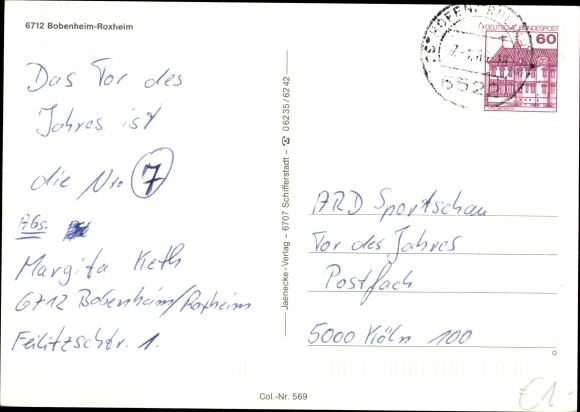 6712 Bobenheim-Roxheim
Das Tor des
Jahres ist
die Nro 7
Abs.
Margita Keth
6712 Bobenheim/Roxheim
Feilitzschstr. 1.
Jaenecke-Verlag - 6707 Schifferstadt - 06235/6242
Col.-Nr. 569
DEUTSCHE BUNDESPOST
60
6522
ARD Sportschau
Tor des Jahres
Postfach
5000 Köln 100
€1-